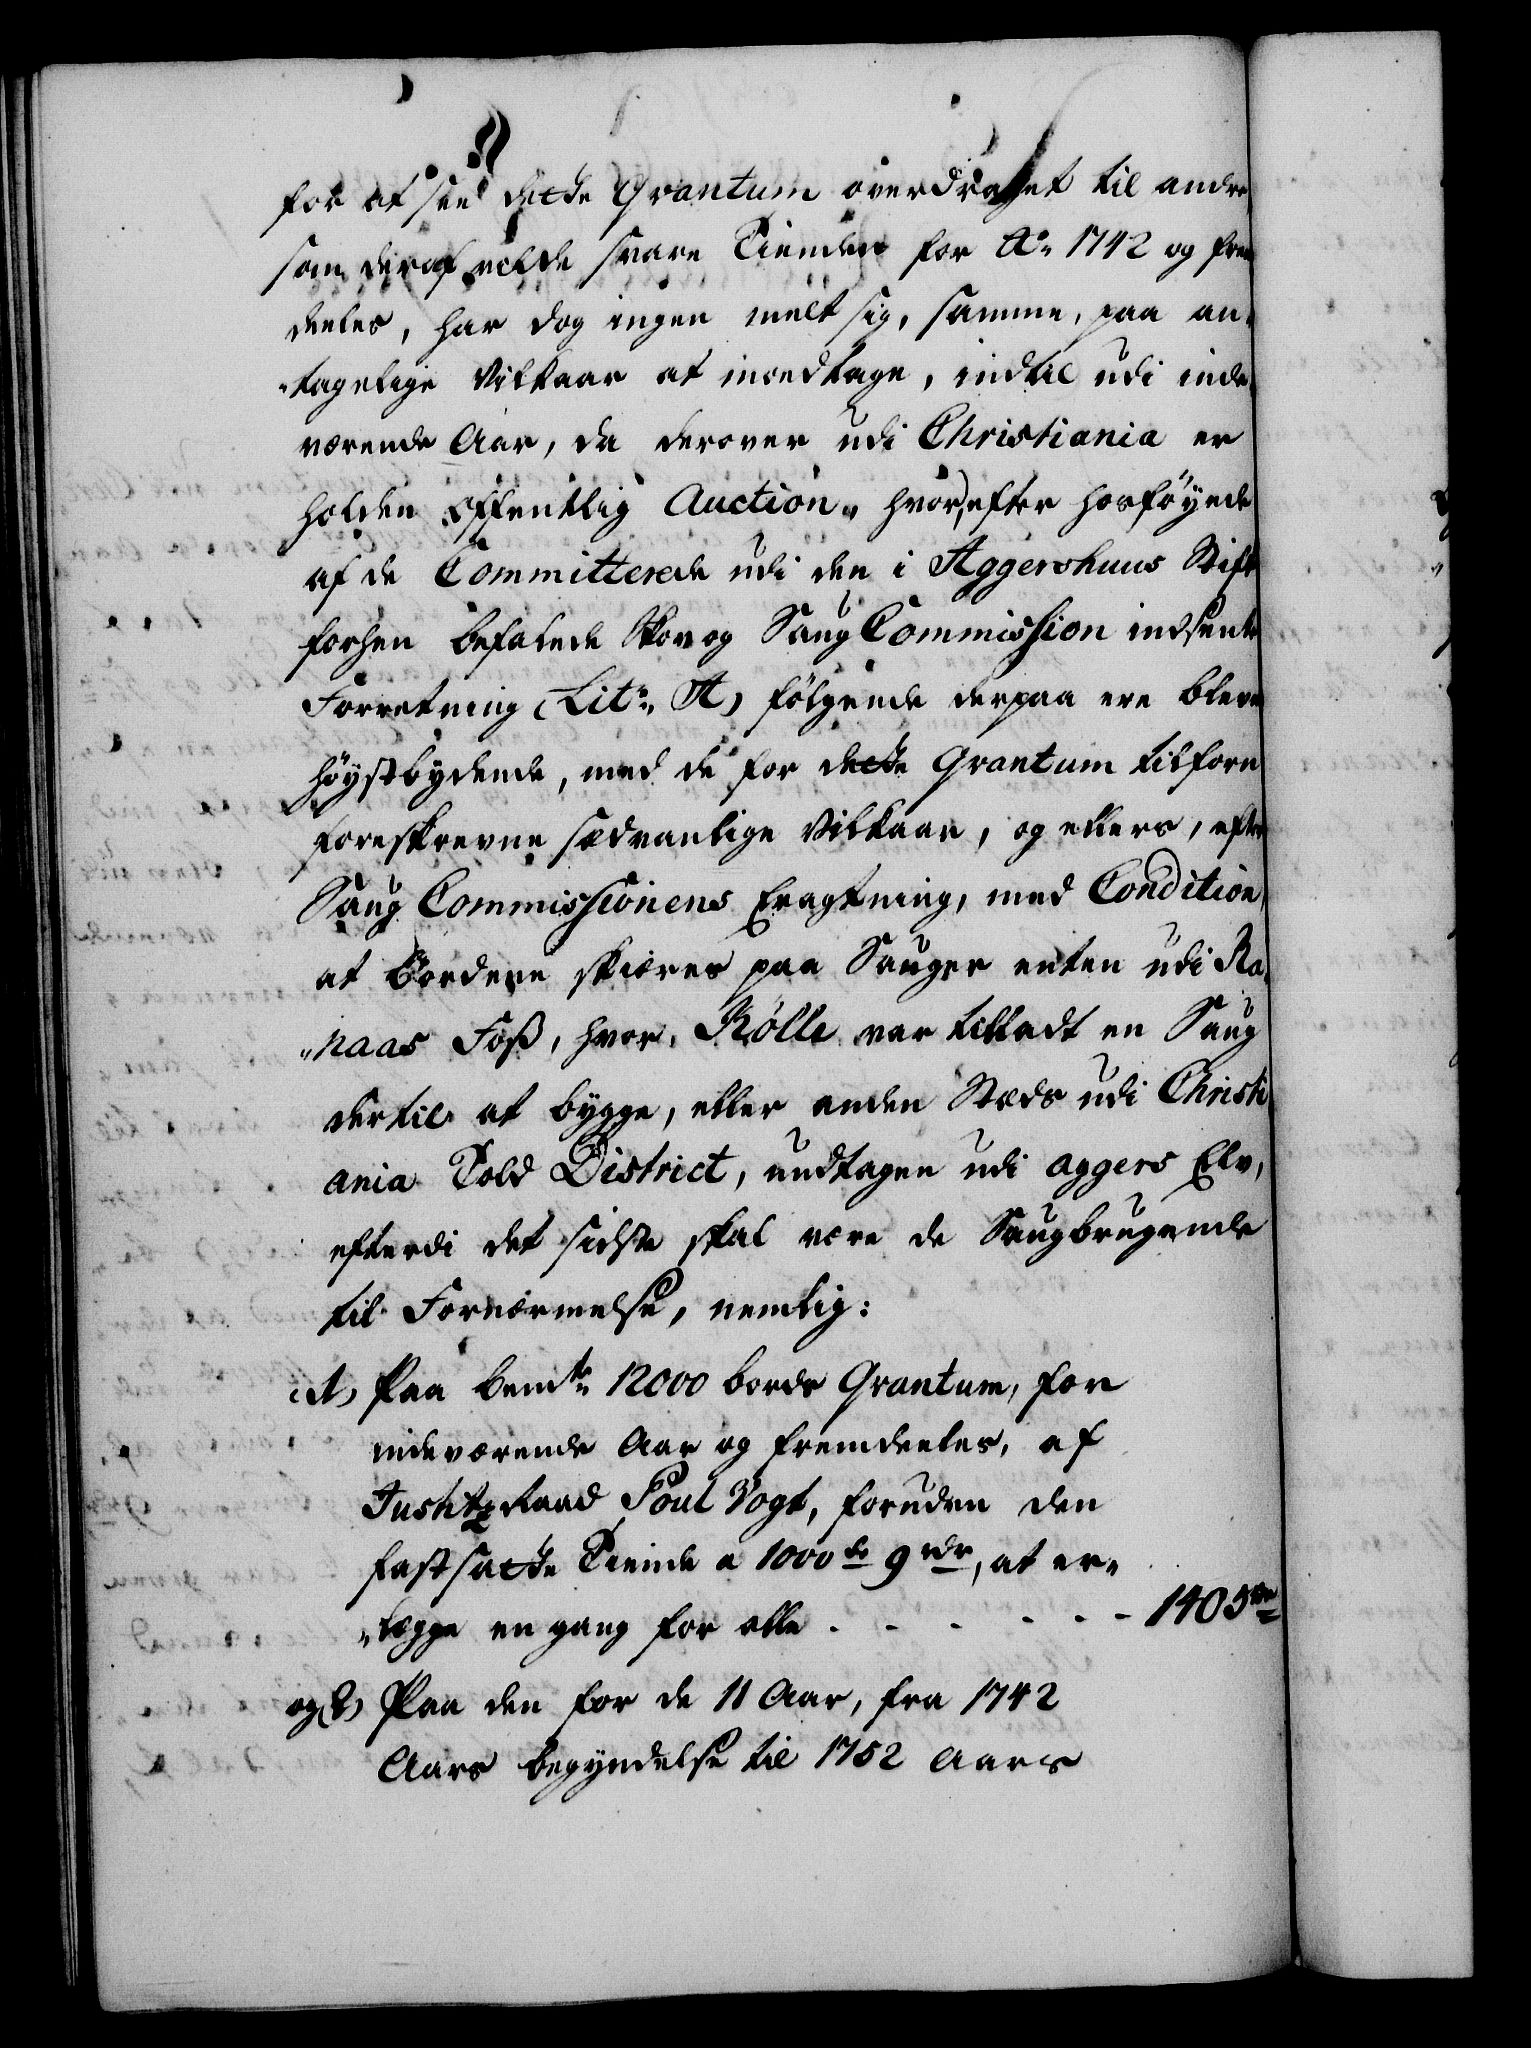 for at see dette Qvantum overdraget til andre,
som deraf vilde svare Tienden for Ao 1742 og frem
deeles, har dog ingen meldt sig, samme, paa an-
tagelige Vilkaar at imodtage, indtil udi inde
værende Aar, da derover udi Christiania er
holden offentlig Auction, hvor, efter hosføyede
af de Committerede udi den i Aggershuus Stift
forhen befalede Skov og Saug Commission indsendte
Forretning (Litr. A) følgende derpaa ere bleven
høystbydende, med de for dette Qvantum tilforn
foreskrevne sædvanlige Vilkaar, og ellers, efter
Saug Commissionens Eragtning, med Condition,
at Bordene skiæres paa Sauger enten udi Ra-
naas Foss, hvor, Kølle var tilladt en Saug
dertil at bygge, eller anden Steds udi Christi
ania Told District, undtagen udi Aggers Elv,
efterdi det sidste skal være de Saugbrugende
til Fornærmelse, nemlig:
1) Paa bemte 12000 bords Qvantum, for
indeværende Aar og fremdeeles, af
Justitz Raad Poul Vogt, foruden den
fastsatte Tiende a 1000de 9 rdr, at er-
lægge en gang for alle . - - - - - 1405 rdr
og 2) Paa den for de 11 Aar, fra 1742
Aars begyndelse til 1752 Aars